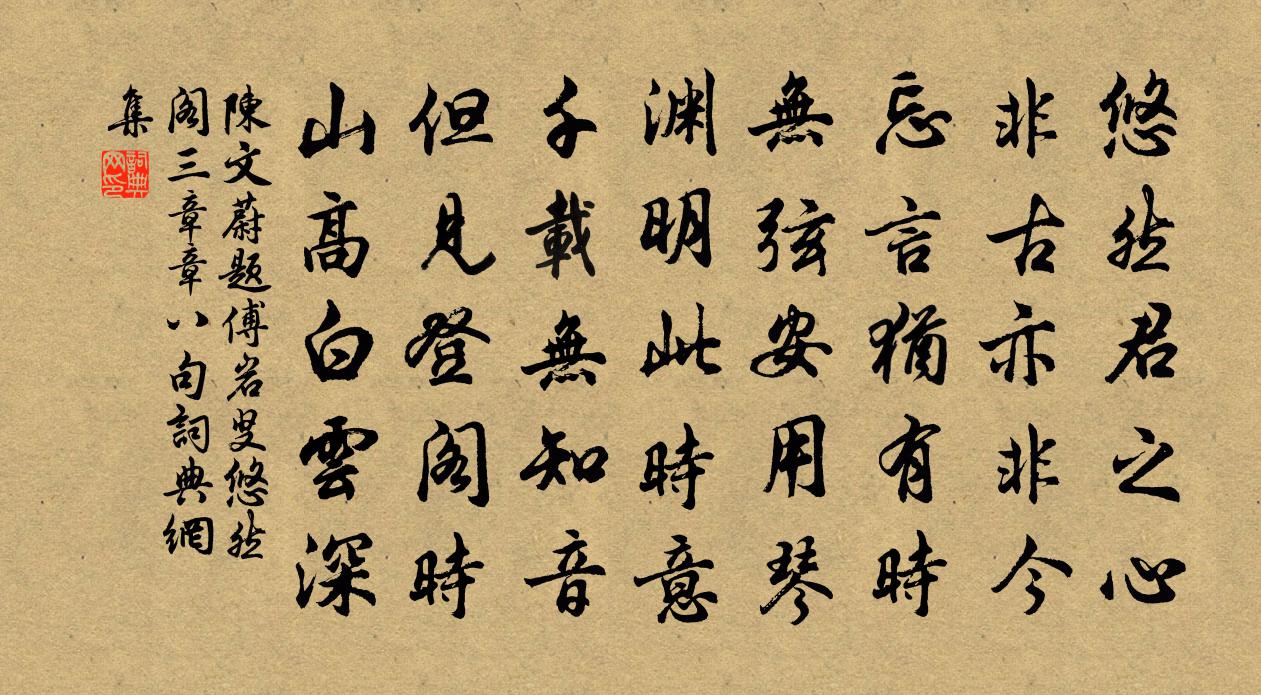 悠然君之心
非古亦非今
忘言猶有時
無弦安用琴
淵明此時意
千載無知音
但見登閣時
山高白雲深
陳文蔚題傅岩叟悠然
閣三章章八句詞典網
集
詞典
网印